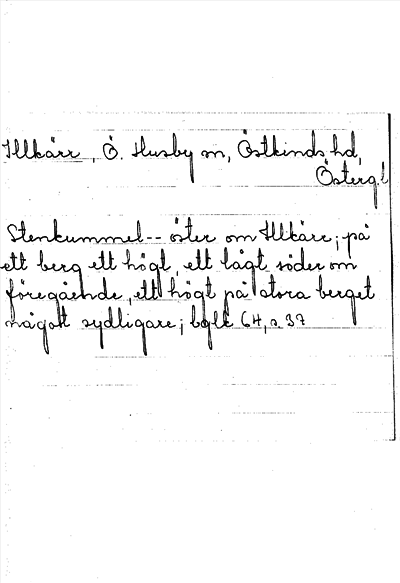 Illkärr, Ö. Husby sn, Östkinds hd,
Österg.l
Stenkummel-- öster om Illkärr; på
ett berg ett högt, ett lågt söder om
föregående, ett högt på stora berget
något sydligare; 64, s. 37